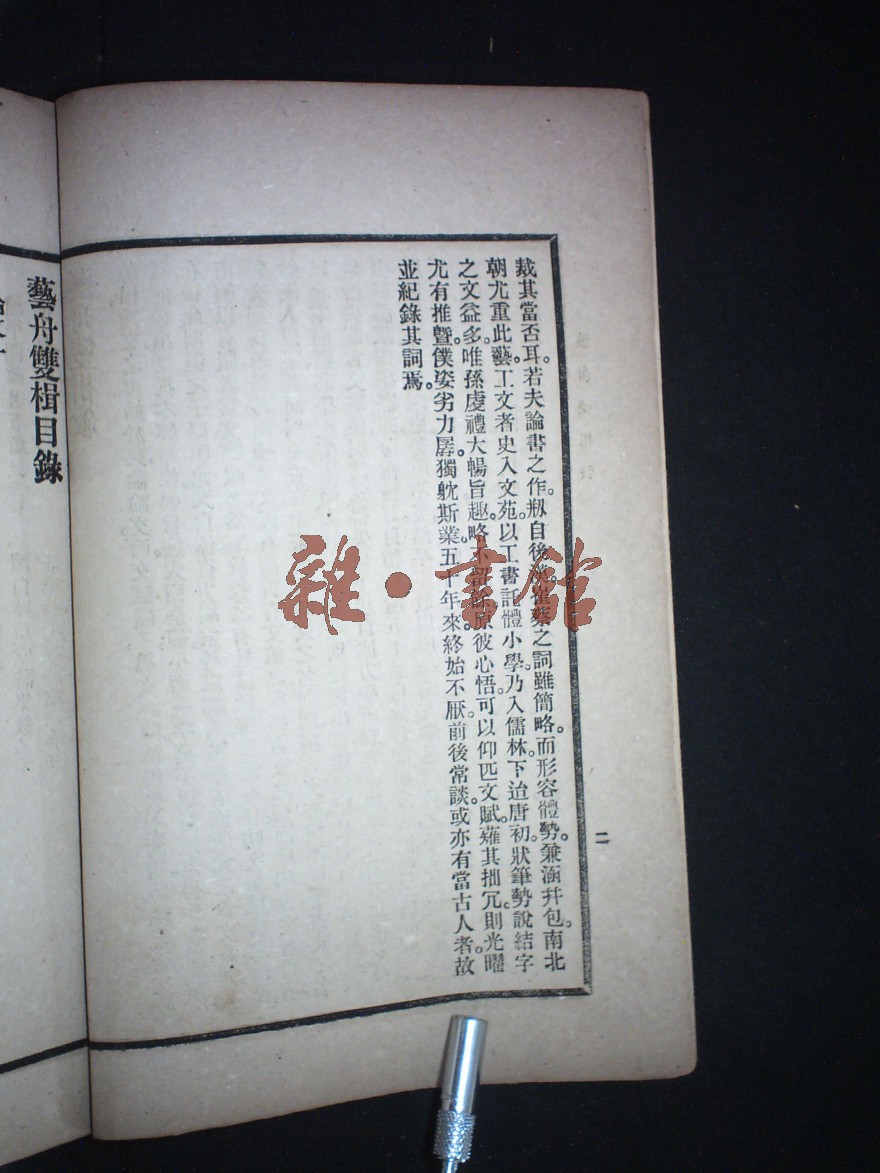 裁其當否耳。若夫論書之作。㧞自後漢。崔蔡之詞雖簡略。而形容體勢。兼涵幷包。南北
朝尤重此藝。工文者史入文苑。以工書託體小學。乃入儒林。下迨唐初。狀筆勢說結字
之文益多。唯孫虔禮大暢旨趣。略不留餘。原彼心悟。可以仰匹文賦。薙其拙冗。則光曜
尤有推曁。僕姿劣力孱。獨躭斯業五十年來。終始不厭。前後常談。或亦有當古人者。故
並紀錄其詞焉。
二
藝舟雙楫目錄
雜·書館